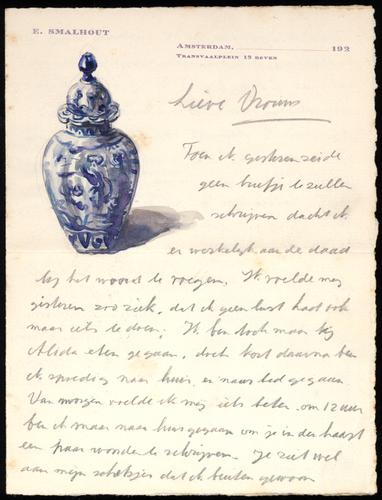 E. SMALHOUT
AMSTERDAM, 192
TRANSVAALPLEIN 15 BOVEN
Lieve Vrouws
Toen ik gisteren zeide
geen briefje te zullen
schrijven dacht ik
er werkelijk aan de daad
bij het woord te voegen. Ik voelde mij
gisteren zoo ziek, dat ik geen lust had ook
maar iets te doen. Ik ben toch maar bij
Alida eten gegaan, doch kort daarna ben
ik spoedig naar huis en naar bed gegaan
Van morgen voelde ik mij iets beter. om 12 uur
ben ik maar naar huis gegaan om je in der haast
een paar woorden te schrijven. Je ziet wel
aan mijn dat ik buiten gewoon